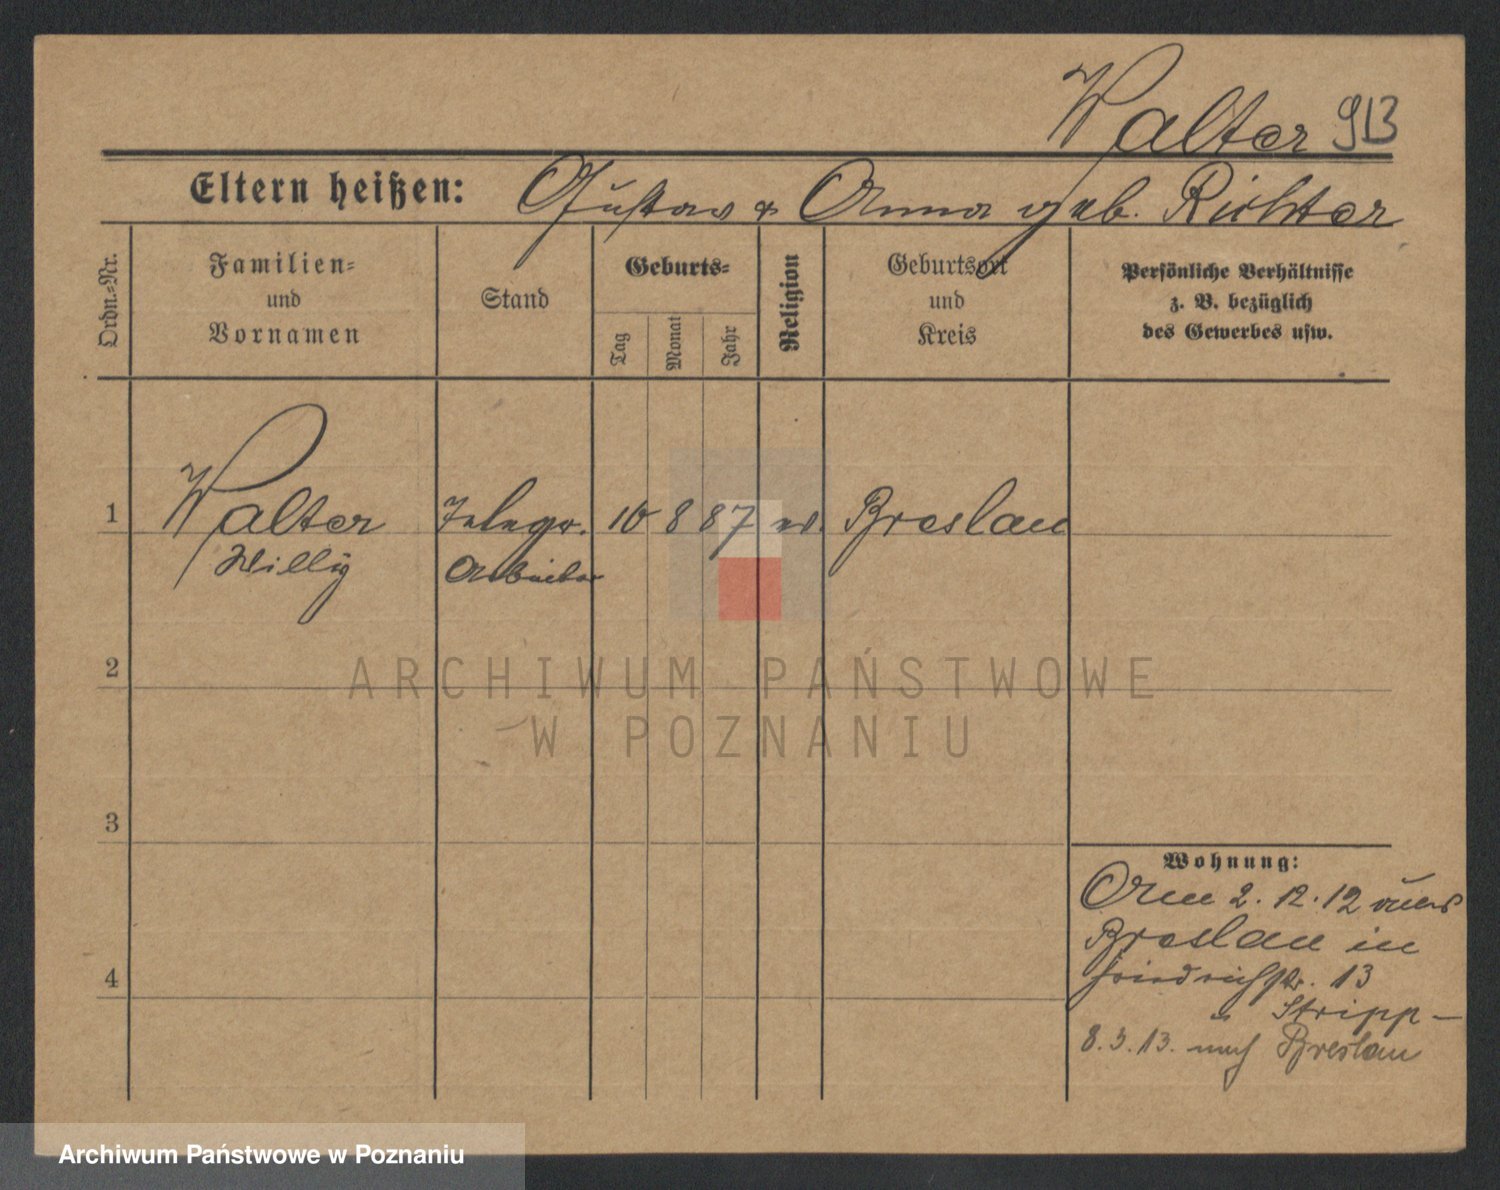 Walter 913
Eltern heißen: Gustav & Anna geb. Richter
Ordn.-Nr.
Familien-
und
Vornamen
Stand
Geburts-
Tag
Monat
Jahr
Religion
Geburtsort
und
Kreis
Persönliche Verhältnisse
z. B. bezüglich
des Gewerbes usw.
1 Walter Telegr. 10 8 87 ev. Breslau
Willy Arbeiter
2
ARCHIWUM PAŃSTWOWE
W POZNANIU
3
Wohnung:
Am 2. 12. 12 von
Breslau in
Friedrichstr. 13
Stripp-
8. 3. 13. nach Breslau
4
Archiwum Państwowe w Poznaniu